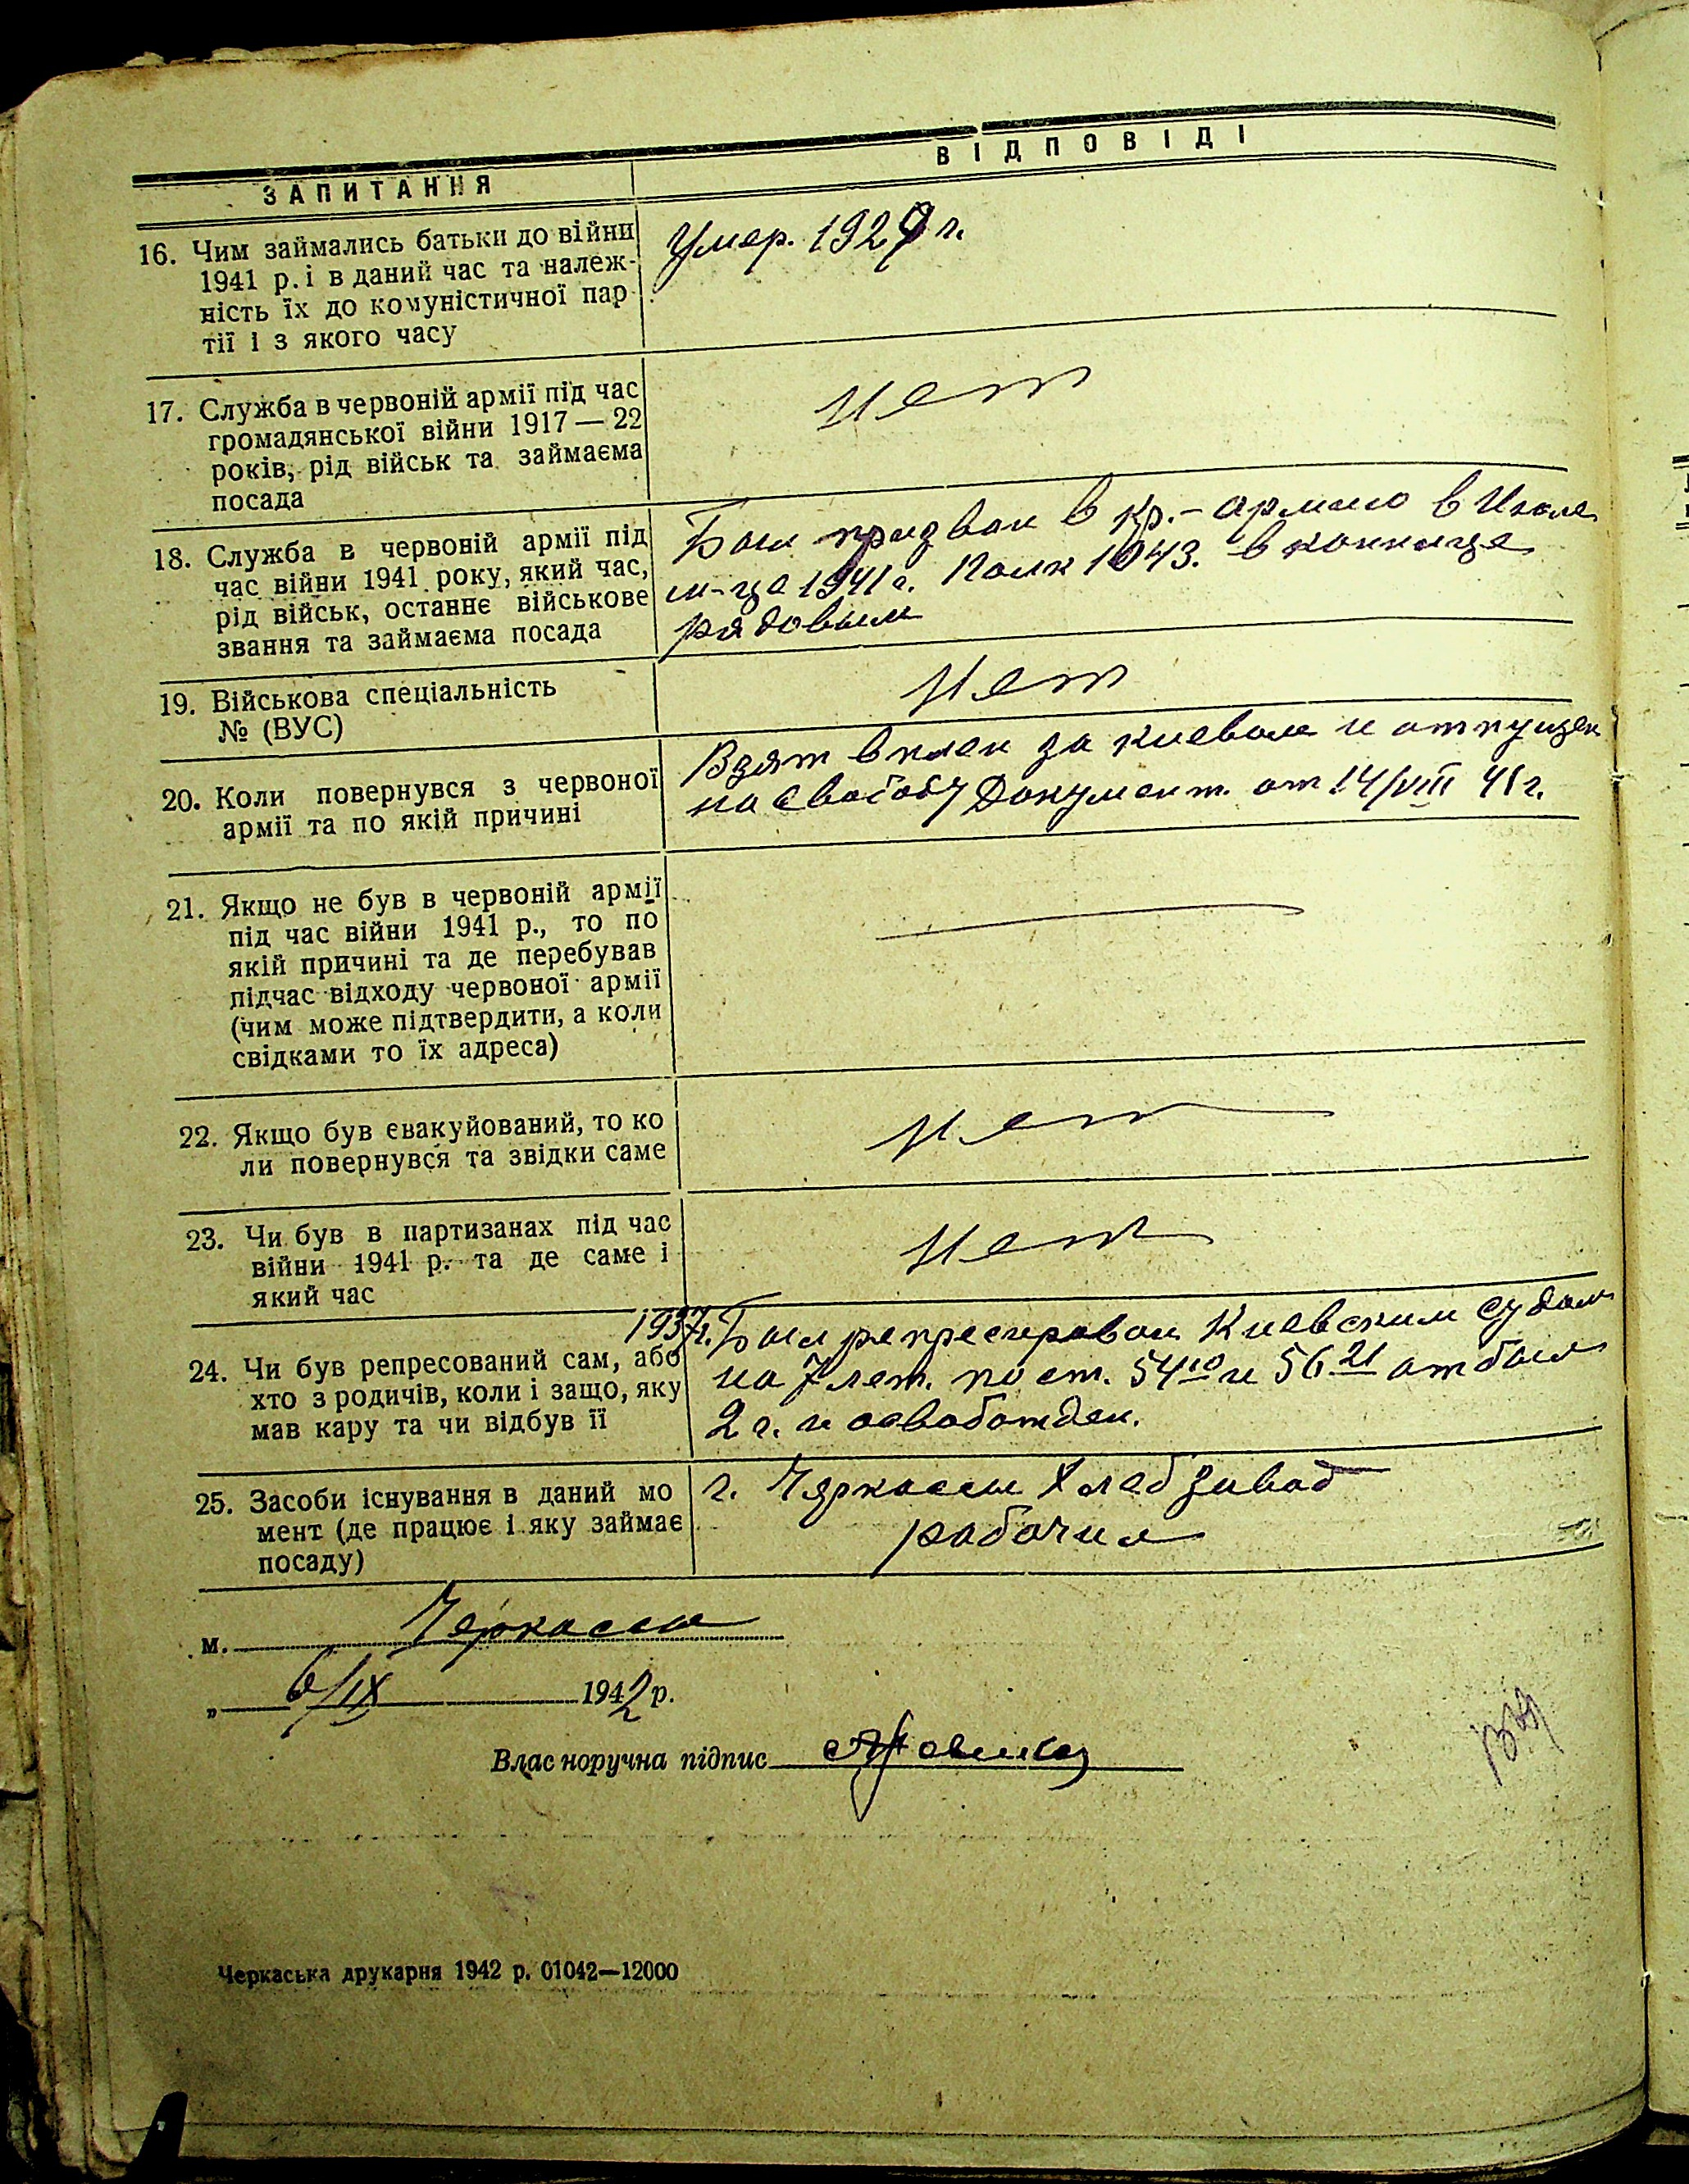 ЗАПИТАННЯ
ВІДПОВІДІ
16. Чим займались батьки до війни
1941 р. і в даний час та належ-
ність їх до комуністичної пар
тії і з якого часу
Умер. 1929 г.
17. Служба в червоній армії під час
громадянської війни 1917—22
років, рід військ та займаєма
посада
нет
18. Служба в червоній армії під
час війни 1941 року, який час,
рід військ, останнє військове
звання та займаєма посада
Был призван в кр.-армию в Июле
м-це 1941 г. Полк 1043. в коннице
рядовым
19. Військова спеціальність
№ (ВУС)
нет
20. Коли повернувся з червоної
армії та по якій причині
Взят в плен за киевом и отпущен
на свободу Документ. от 14/VIII 41 г.
21. Якщо не був в червоній армії
під час війни 1941 р., то по
якій причині та де перебував
підчас відходу червоної армії
(чим може підтвердити, а коли
свідками то їх адреса)
22. Якщо був євакуйований, то ко
ли повернувся та звідки саме
нет
23. Чи був в партизанах під час
війни 1941 р. та де саме і
який час
нет
24. Чи був репресований сам, або
хто з родичів, коли і защо, яку
мав кару та чи відбув її
1937г. Был репресирован Киевским судом
на 7 лет. по ст. 54¹⁰ и 56²¹ отбыл
2 г. и освобожден.
25. Засоби існування в даний мо
мент (де працює і яку займає
посаду)
г. Черкассы Хлебзавод
рабочий
м. Черкассы
„ 6/IX 1942 р.
Власноручна підпис
Черкаська друкарня 1942 р. 01042—12000